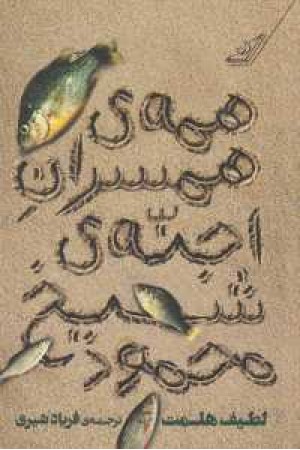 همه‌ی
همسرانِ
اجنّه‌ی
شیخ
محمودیم
لطیف هلمت ترجمه‌ی فریاد شیری